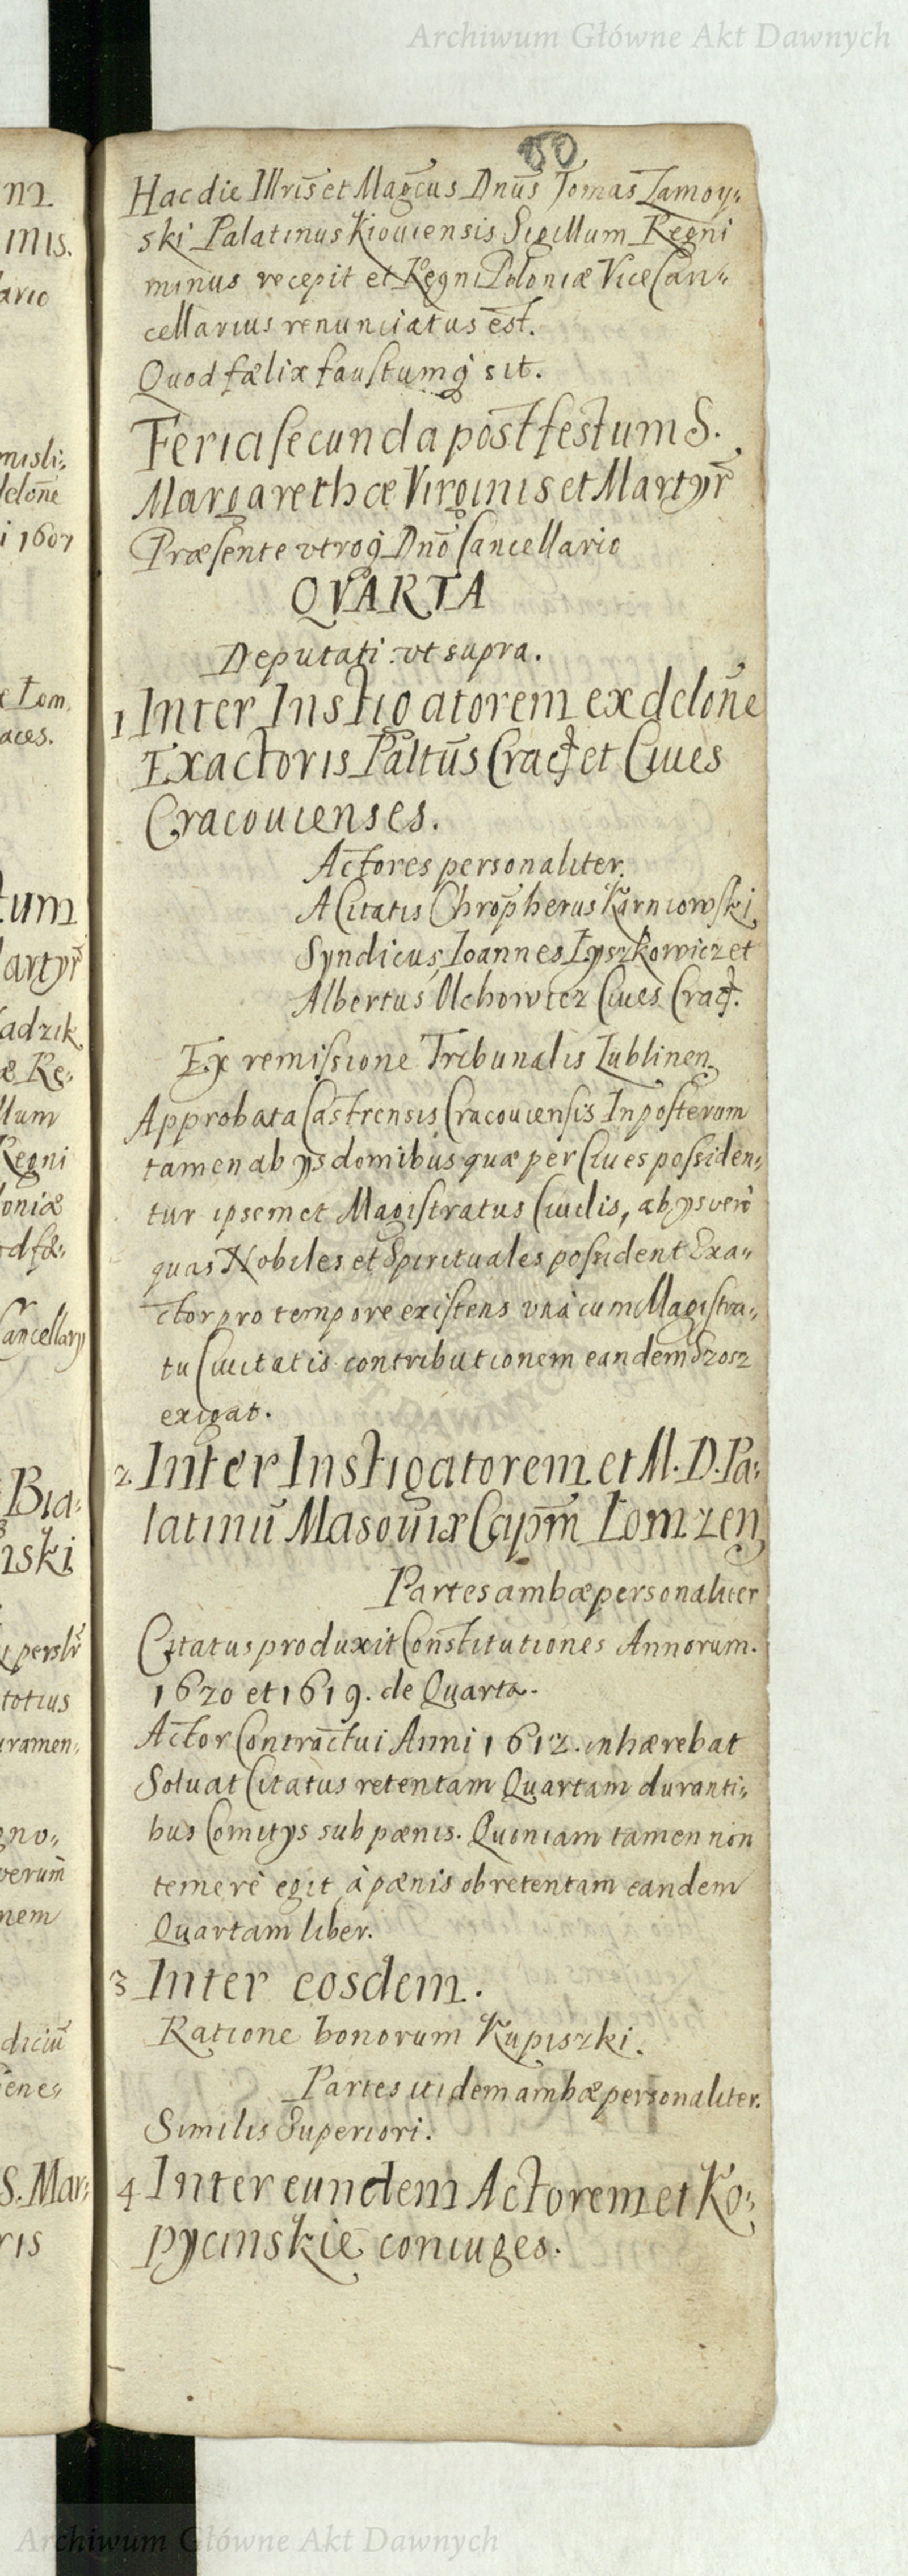 Archiwum Główne Akt Dawnych
50
Hac die Illris̄ et Magc̄us Dnūs Tomas Zamoy:
ski Palatinus Kiouiensis Sigillum Regni
minus recepit et Regni Poloniæ ViceCan:
cellarius renunciatus est.
Quod fælix faustumq̨ sit.
Feria secunda post festum S.
Margarethæ Virginis et Martyr̄
Præsente vtroq̨ Dnō Cancellario
QVARTA
Deputati vt supra.
1 Inter Instigatorem ex delōne
Exactoris Palt̄us Crac̨ et Ciues
Cracouienses.
Actores personaliter.
A Citatis Chrop̄herus Karniowski
Syndicus, Ioannes Łyszkowicz et
Albertus Olchowicz Ciues Crac̨.
Ex remissione Tribunalis Lublinen
Approbata Castrensis Cracouiensis Inposterum
tamen ab ijs domibus quæ per Ciues possiden:
tur ipsemet Magistratus Ciuilis, ab ijs verò
quas Nobiles et Spirituales possident Exa:
ctor pro tempore existens vnà cum Magistra:
tu Ciuitatis contributionem eandem Szosz
exigat.
2. Inter Instigatorem et M. D. Pa:
latinū Masouiæ Capm̄ Łomzen
Partes ambæ personaliter
Citatus produxit Constitutiones Annorum.
1620 et 1619. de Quarta.
Actor Contractui Anni 1612. inhærebat
Soluat Citatus retentam Quartam duranti:
bus Comitijs sub pænis. Quoniam tamen non
temerè egit à pænis ob retentam eandem
Quartam liber.
3 Inter eosdem.
Ratione bonorum Kupiszki.
Partes itidem ambæ personaliter.
Similis Superiori.
4 Inter eundem Actorem et Ko:
pycinskie coniuges.
Archiwum Główne Akt Dawnych